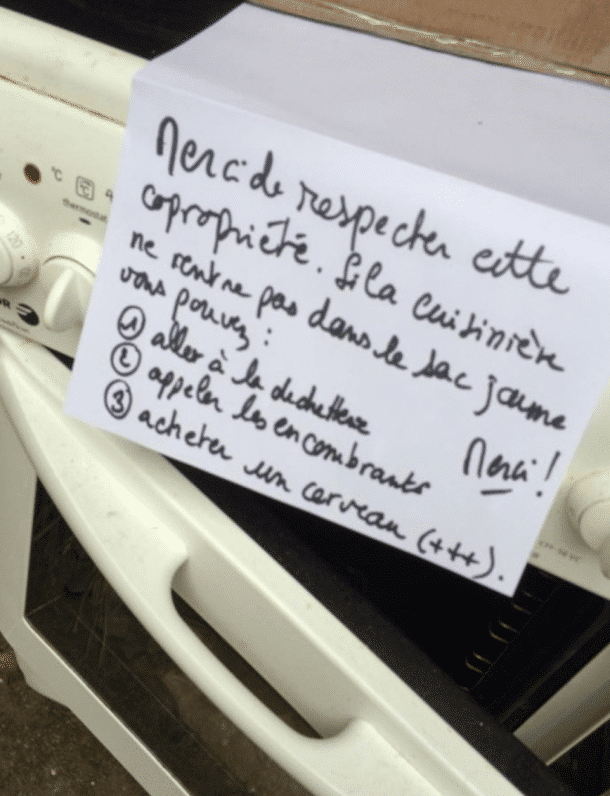 Merci de respecter cette
copropriété. Si la cuisinière
ne rentre pas dans le sac jaune
vous pouvez :
① aller à la dechetterie
② appeler les encombrants
③ acheter un cerveau (+++).
Merci !
°C
°C
thermostat
120